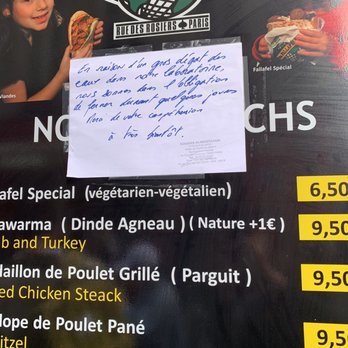 RUE DES ROSIERS PARIS
Viandes
Fallafel Special
En raison d'un gros dégât des
eaux dans notre laboratoire,
nous sommes dans l'obligation
de fermer durant quelques jours
Merci de votre compréhension
à très bientôt.
NO CHS
afel Special (végétarien-végétalien) 6,50
awarma ( Dinde Agneau ) ( Nature +1€ ) 9,50
b and Turkey
daillon de Poulet Grillé ( Parguit ) 9,50
ed Chicken Steack
lope de Poulet Pané 9,50
itzel